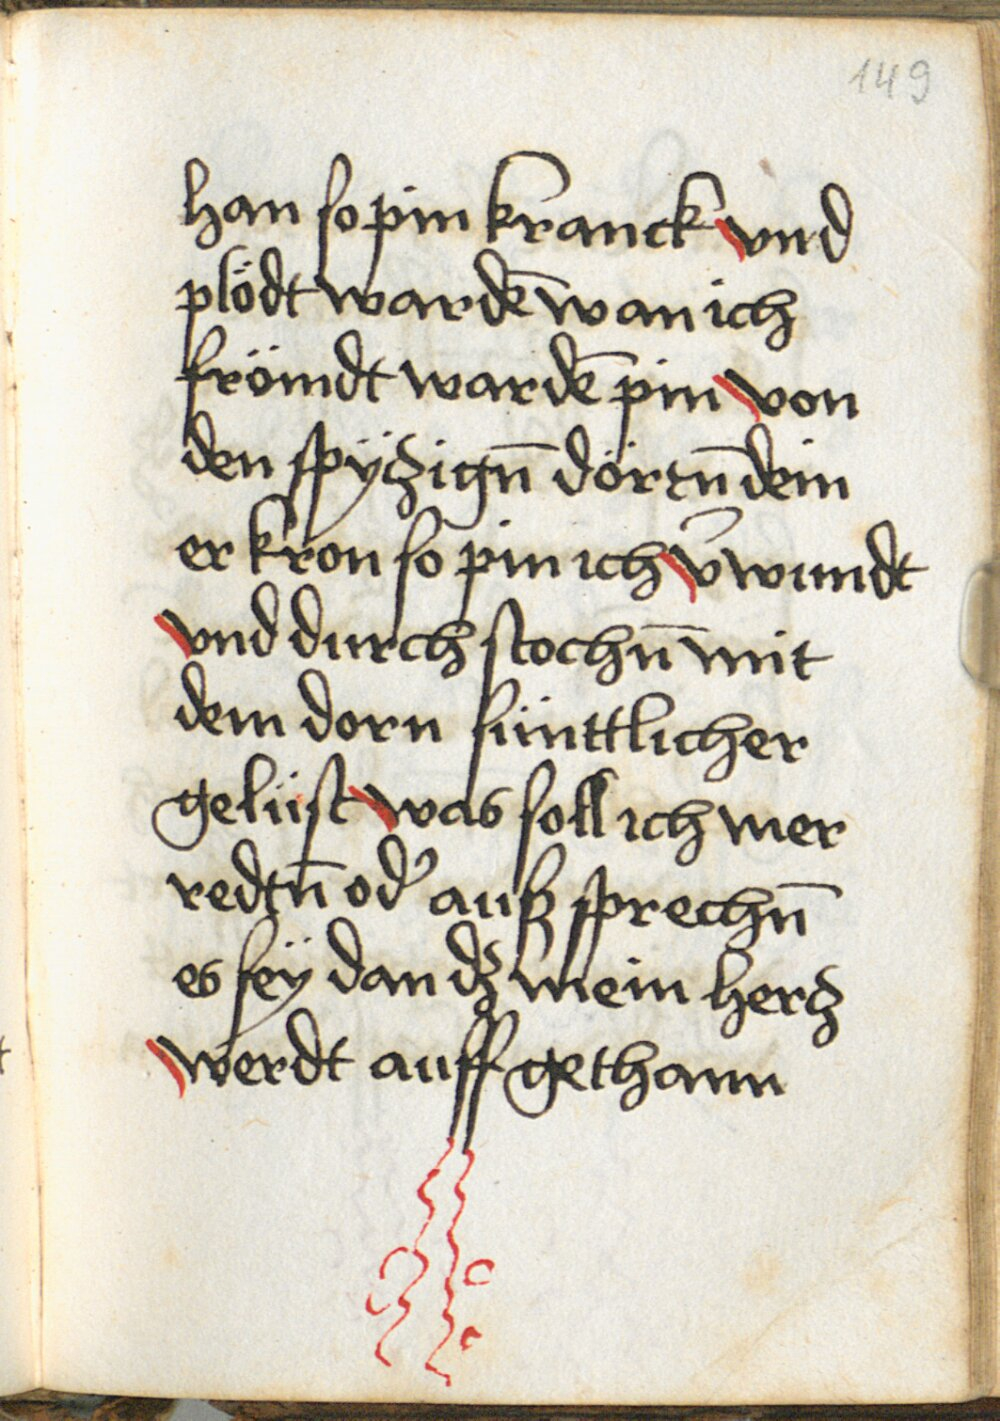 149
han so pin kranck vnd
plödt wardē wan ich
frömdt wardē pin von
den spÿczign̄ dörtn̄ dein
er kron so pin ich v̄wundt
vnd durch stochn̄ mit
dem dorn sünttlicher
gelüst was soll ich mer
redtn̄ od͛ auß sprechn̄
es seÿ dan dz mein hercz
werdt auff gethann